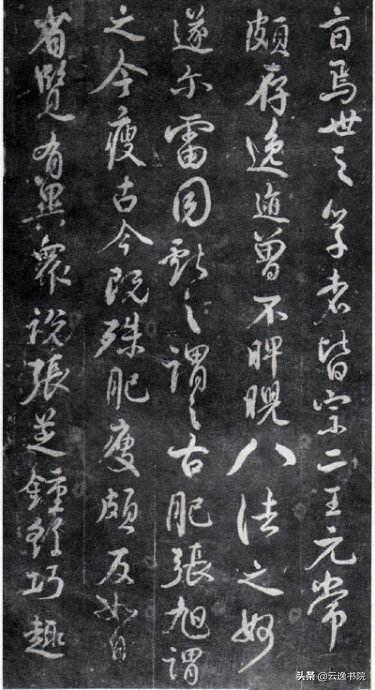 焉世之學者皆宗二王元常
頗存逸迹曾不睥睨八法之妙
遂尔雷同獻之謂之古肥張旭謂
之今瘦古今既殊肥瘦頗反如自
省覽有異衆説張芝鍾繇巧趣
头条 @云逸书院